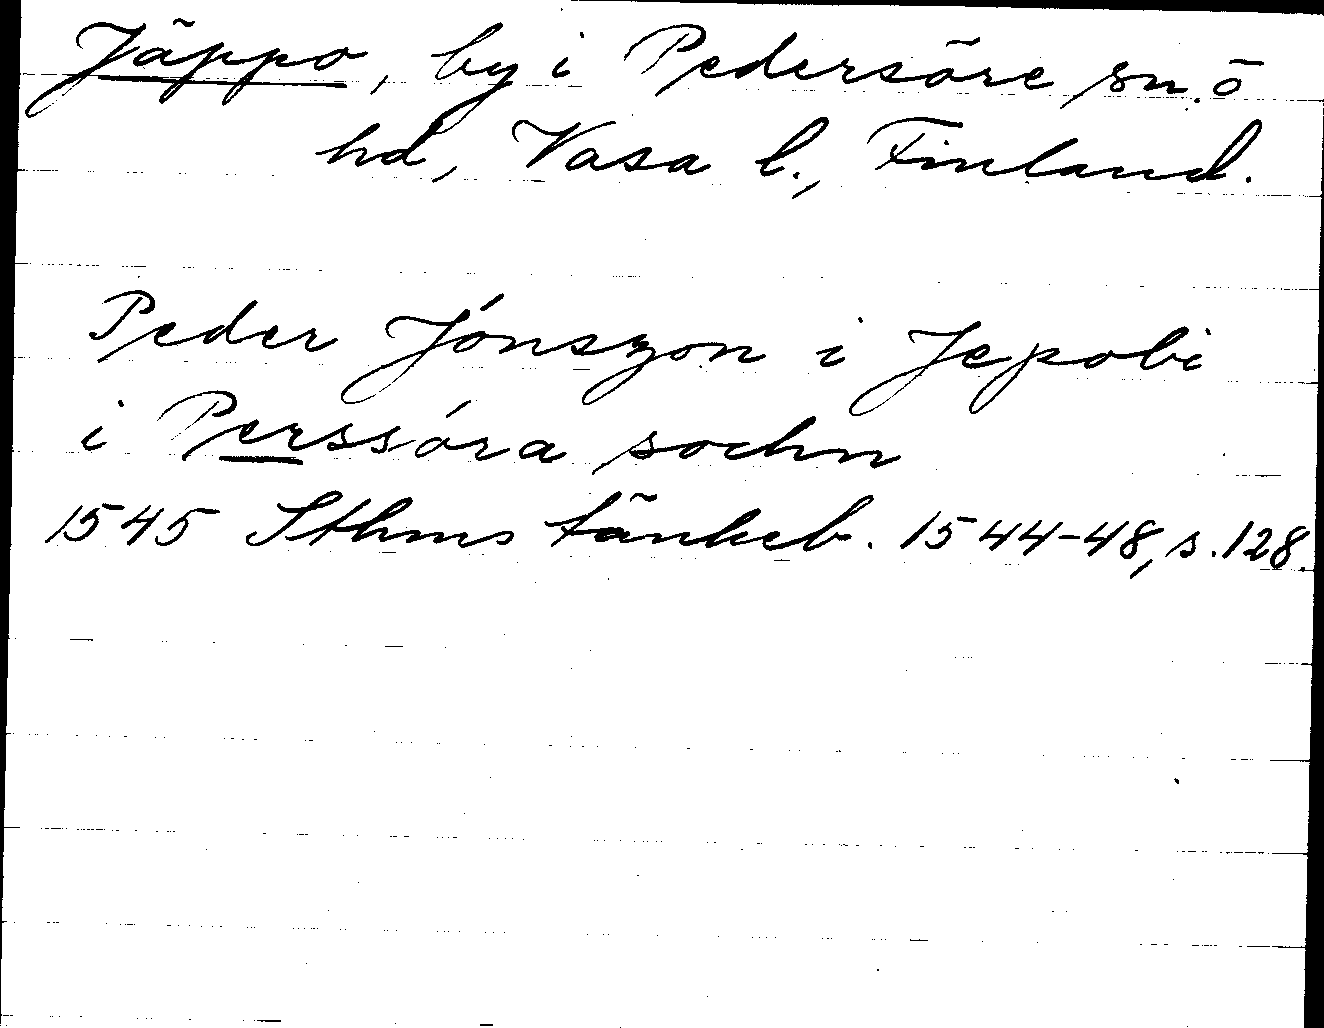 Jäppo, by i Pedersöre sn. o
hd, Vasa l., Finland.
Peder Jónszon i Jepobi
i Perssóra sochn
1545 Sthms tänkeb. 1544-48, s. 128.